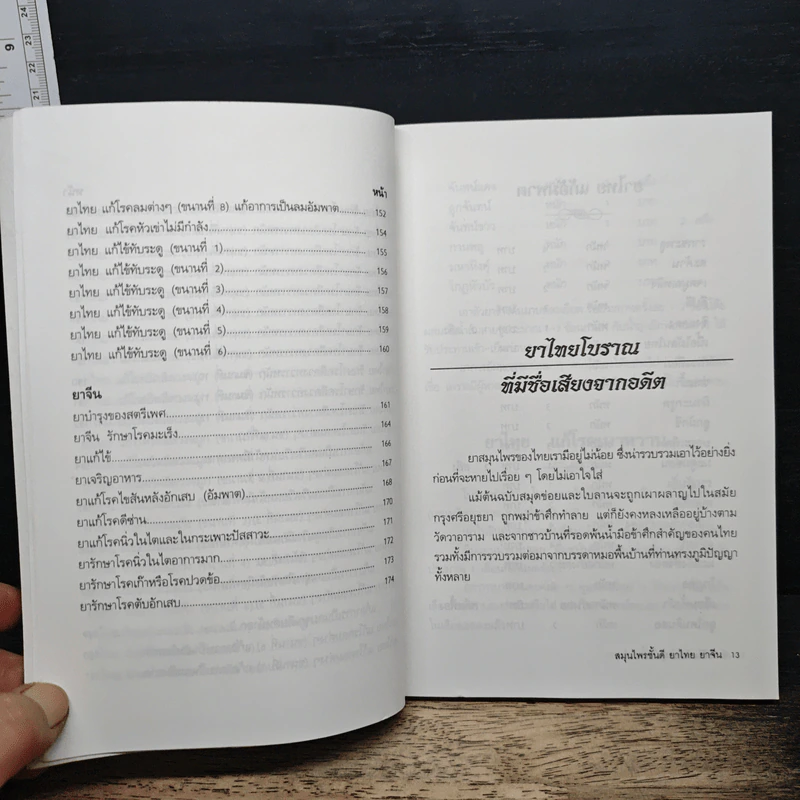 หน้า
ยาไทย แก้โรคลมต่างๆ (ขนานที่ 8) แก้อาการเป็นลมอัมพาต.................. 152
ยาไทย แก้โรคหัวเข่าไม่มีกำลัง.................. 154
ยาไทย แก้ไข้ทับระดู (ขนานที่ 1).................. 155
ยาไทย แก้ไข้ทับระดู (ขนานที่ 2).................. 156
ยาไทย แก้ไข้ทับระดู (ขนานที่ 3).................. 157
ยาไทย แก้ไข้ทับระดู (ขนานที่ 4).................. 158
ยาไทย แก้ไข้ทับระดู (ขนานที่ 5).................. 159
ยาไทย แก้ไข้ทับระดู (ขนานที่ 6).................. 160
ยาจีน
ยาบำรุงของสตรีเพศ.................. 161
ยาจีน รักษาโรคมะเร็ง.................. 164
ยาแก้ไข้.................. 166
ยาเจริญอาหาร.................. 167
ยาแก้โรคไขสันหลังอักเสบ (อัมพาต).................. 168
ยาแก้โรคดีซ่าน.................. 170
ยาแก้โรคนิ่วในไตและในกระเพาะปัสสาวะ.................. 171
ยารักษาโรคนิ่วในไตอาการมาก.................. 172
ยารักษาโรคเก๊าหรือโรคปวดข้อ.................. 173
ยารักษาโรคตับอักเสบ.................. 174
ยาไทยโบราณ
ที่มีชื่อเสียงจากอดีต
ยาสมุนไพรของไทยเรามีอยู่ไม่น้อย ซึ่งน่ารวบรวมเอาไว้อย่างยิ่ง
ก่อนที่จะหายไปเรื่อย ๆ โดยไม่เอาใจใส่
แม้ต้นฉบับสมุดข่อยและใบลานจะถูกเผาผลาญไปในสมัย
กรุงศรีอยุธยา ถูกพม่าข้าศึกทำลาย แต่ก็ยังคงหลงเหลืออยู่บ้างตาม
วัดวาอาราม และจากชาวบ้านที่รอดพ้นน้ำมือข้าศึกสำคัญของคนไทย
รวมทั้งมีการรวบรวมต่อมาจากบรรดาหมอพื้นบ้านที่ท่านทรงภูมิปัญญา
ทั้งหลาย
สมุนไพรชั้นดี ยาไทย ยาจีน 13